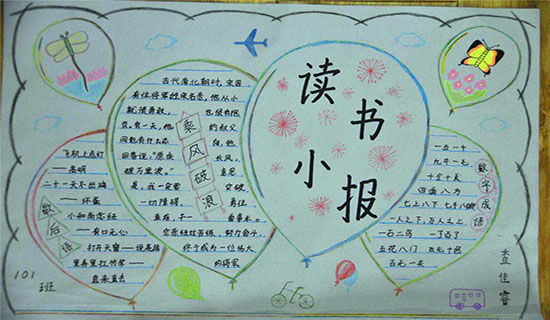 读书
小报
古代南北朝时,宋国
有位将军姓宗名悫,他从小
就很勇敢, 也很有抱
负,有一天,他 的叔父
问他有什么志 向,他
回答说,"愿乘 长风,
破万里浪。" 意思
是,我一定要 突破
一切障碍, 勇往
直前,干一 番事业。
宗悫经过苦练,努力奋斗,
终于成为一位伟大
的将军
乘风破浪
飞机上点灯
——高明
二十一天不出鸡
——坏蛋
小和尚念经
——有口无心
打开天窗——说亮话
里弄里拉竹竿——
直来直去
歇后语
一五一十
九牛一毛
十全十美
四面八方
七上八下 七手八脚
一人之下,万人之上
一石二鸟 一了百了
五花八门 五光十色
百无一失
数字成语
101
班
查佳睿